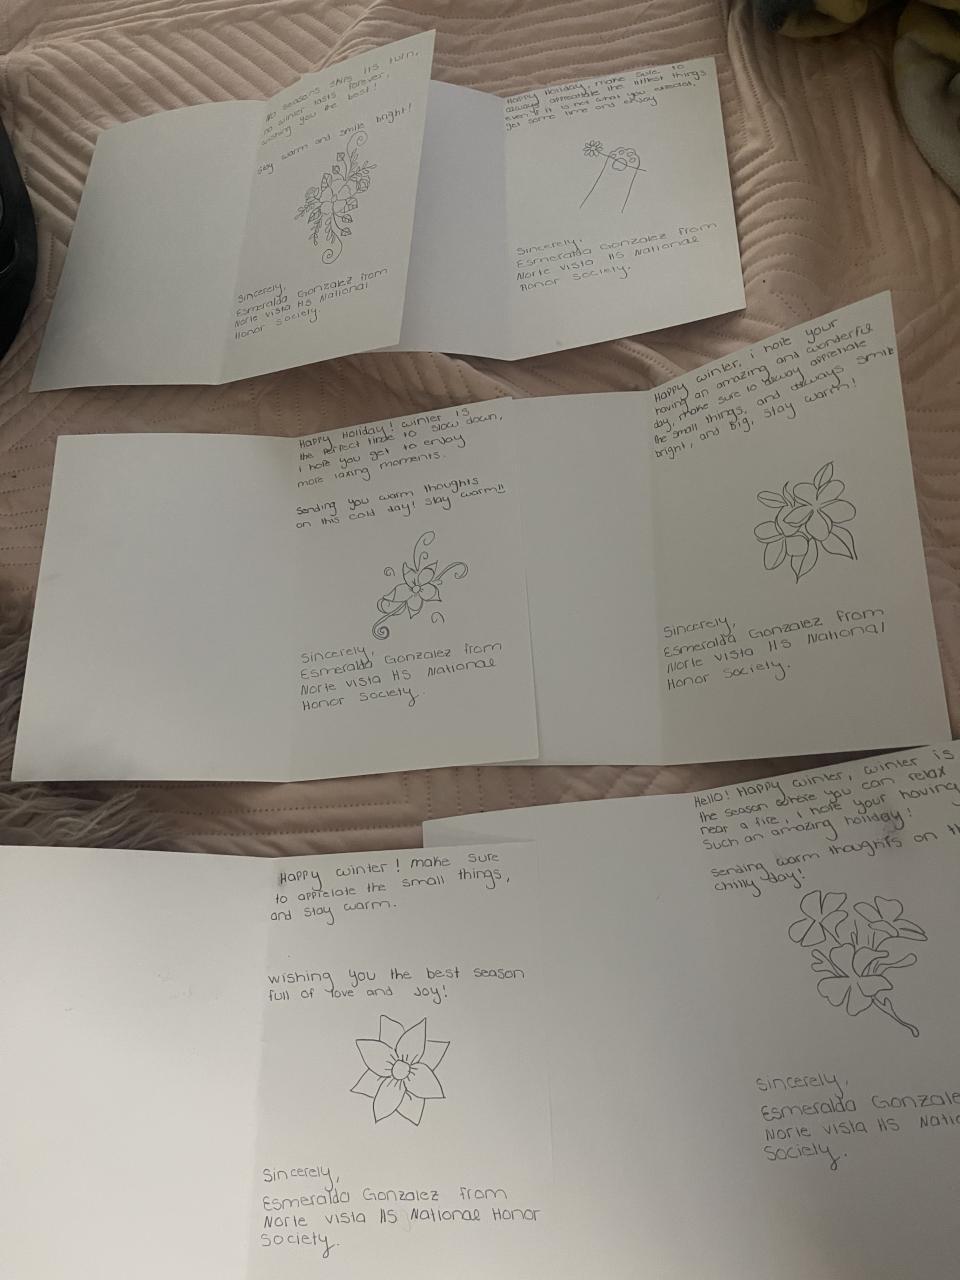 no seasons skips its turn,
no winter lasts forever,
wishing you the best!
stay warm and smile bright!
Sincerely,
Esmeralda Gonzalez from
Norte vista HS National
Honor Society.
Happy Holiday, make sure to
always appreciate the littlest things
even if it is not what you expected,
get some time and enjoy
Sincerely,
Esmeralda Gonzalez from
Norte vista HS National
Honor Society.
Happy Holiday! winter is
the perfect time to slow down,
i hope you get to enjoy
more laxing moments.
sending you warm thoughts
on this cold day! stay warm!!
Sincerely,
Esmeralda Gonzalez from
Norte vista HS National
Honor Society.
Happy winter, i hope your
having an amazing and wonderful
day, make sure to alway appretiate
the small things, and always smile
bright, and Big, stay warm!
Sincerely,
Esmeralda Gonzalez from
Norte vista HS National
Honor Society.
Happy winter! make sure
to appretate the small things,
and stay warm.
wishing you the best season
full of love and Joy!
Sincerely,
Esmeralda Gonzalez from
Norte vista HS National Honor
Society.
Hello! Happy winter, winter is
the season where you can relax
near a fire, i hope your having
such an amazing holiday!
sending warm thoughts on th
chilly day!
Sincerely,
Esmeralda Gonzale
Norte vista HS Natio
Society.